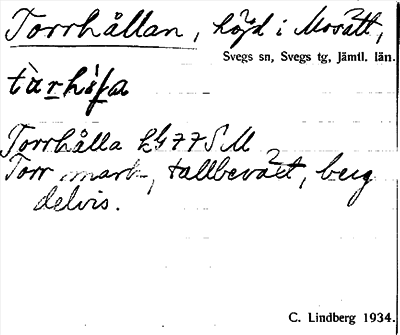 Torrhållan, höjd i Morått,
Svegs sn, Svegs tg, Jämtl. län.
Torrhålla
Torr mark, tallbeväxt, berg
delvis.
C. Lindberg 1934.